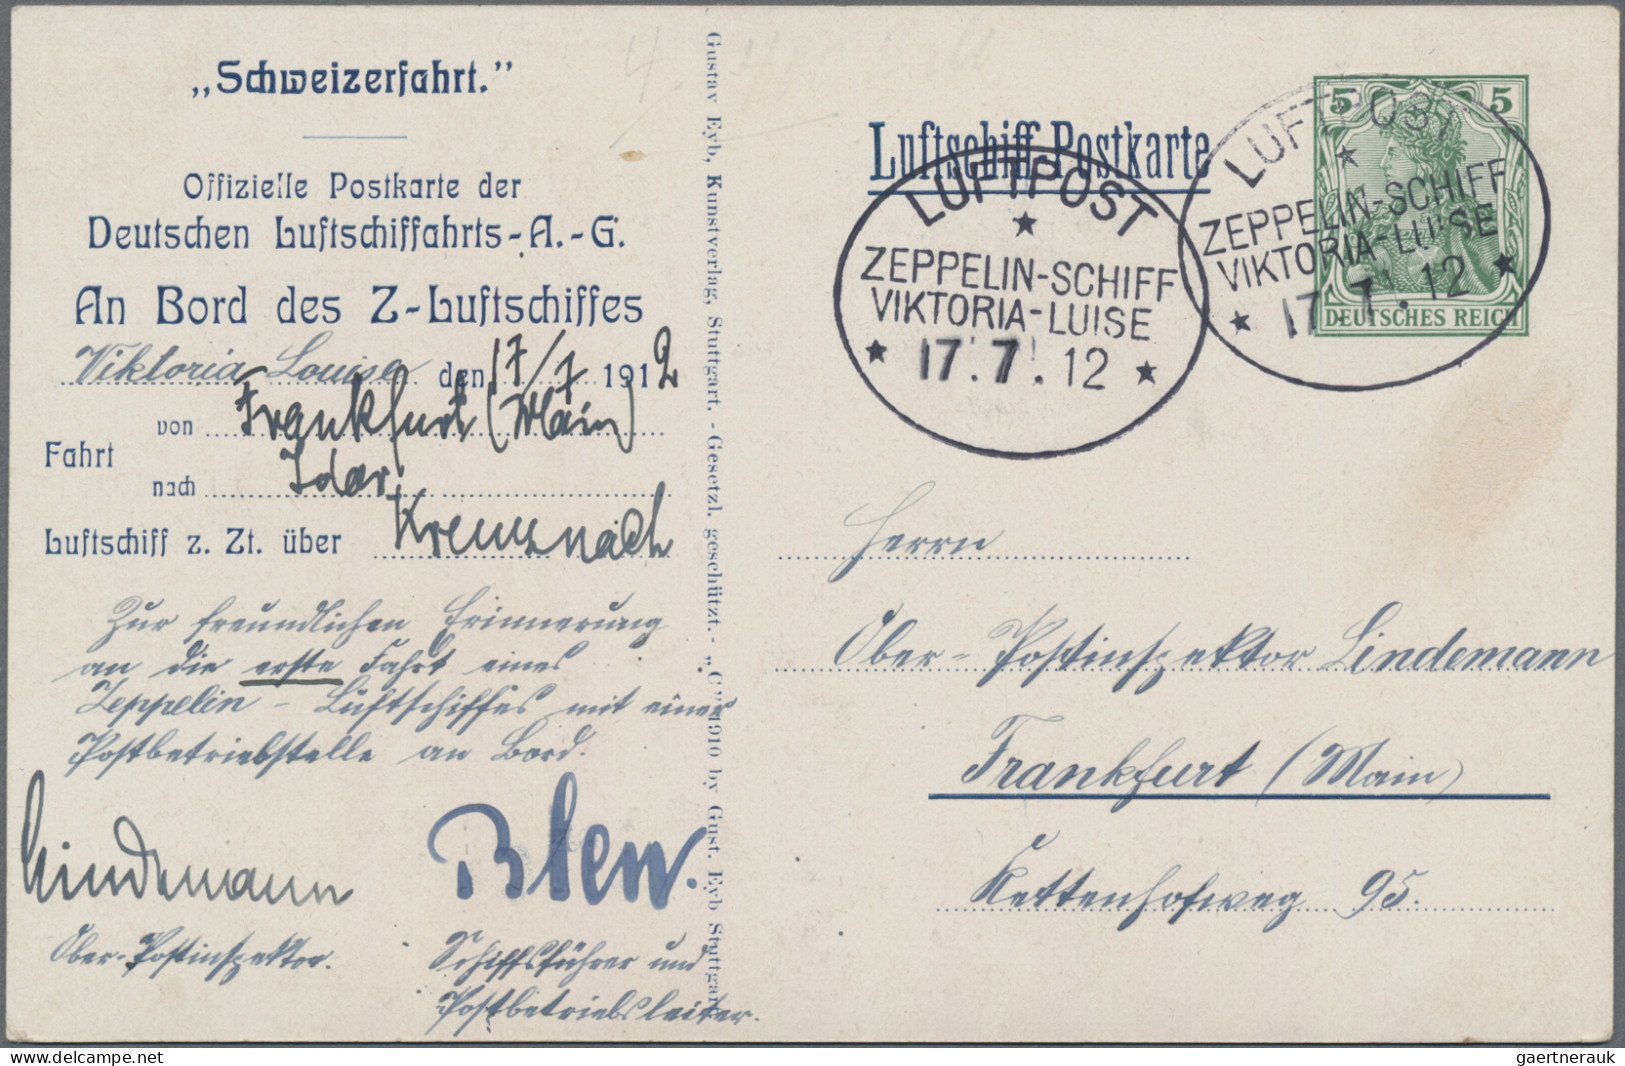 „Schweizerfahrt.”
Offizielle Postkarte der
Deutschen Luftschiffahrts-A.-G.
An Bord des Z-Luftschiffes
Viktoria Louise den 17/7 1912
von Frankfurt (Main)
Fahrt
nach Idar
Luftschiff z. Zt. über Kreuznach
Zur freundlichen Erinnerung
an die erste Fahrt eines
Zeppelin-Luftschiffes mit einer
Postbetriebsstelle an Bord.
Lindemann
Ober-Postinspektor.
Blew.
Schiffsführer und
Postbetriebsleiter.
Gustav Eyb, Kunstverlag, Stuttgart. - Gesetzl. geschützt. - „C” 1910 by Gust. Eyb Stuttgart
Luftschiff-Postkarte
LUFTPOST
ZEPPELIN-SCHIFF
VIKTORIA-LUISE
17.7.12
LUFTPOST
ZEPPELIN-SCHIFF
VIKTORIA-LUISE
17.7.12
5 5
DEUTSCHES REICH
Herrn
Ober-Postinspektor Lindemann
Frankfurt (Main)
Kettenhofweg 95.
delcampe.net
gaertnerauk